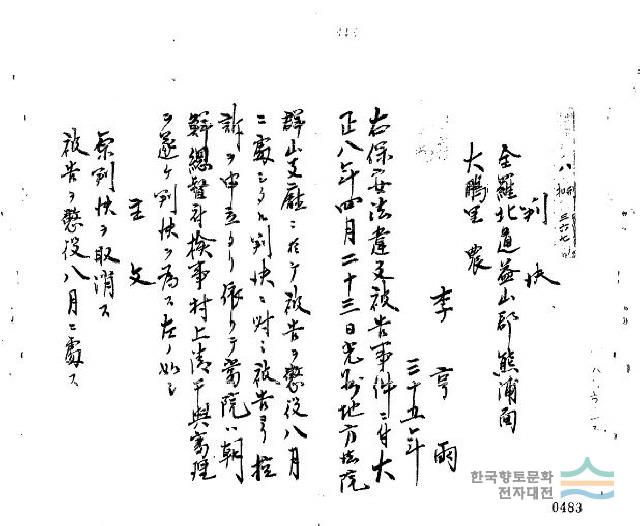 判決
全羅北道益山郡熊浦面
大鵬里 農
李亨雨
三十五年
右保安法違反被告事件ニ付大
正八年四月二十三日光州地方法院
群山支廳ニ於テ被告ヲ懲役八月
ニ處シタル判決ニ対シ被告ヨリ控
訴ヲ申立タリ依リテ當院ハ朝
鮮總督府検事村上清干與審理
ヲ遂ケ判決ヲ為ス左ノ如シ
主文
原判決ヲ取消ス
被告ヲ懲役八月ニ處ス
한국향토문화
전자대전
0483